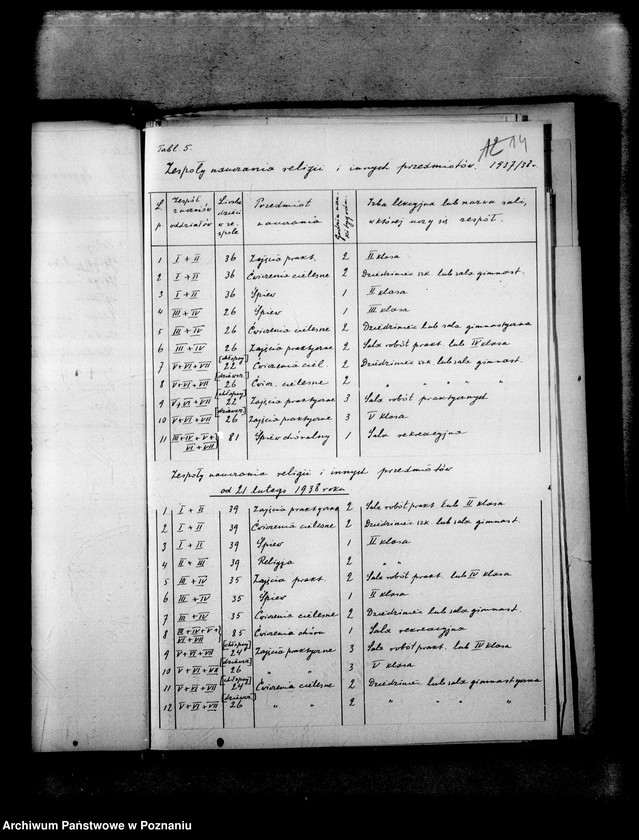 Tabl 5.
14
Zespoły nauczania religii i innych przedmiotów. 1937/38 r.
L p. | Zespół z uczniów oddziałów | Liczba dzieci w ze- spole | Przedmiot nauczania | Godzin tygodn. | Izba lekcyjna lub nazwa sali, w której uczy się zespół.
1 I + II 36 Zajęcia prakt. 2 II klasa
2 I + II 36 Ćwiczenia cielesne 2 Dziedziniec szk. lub sala gimnast.
3 I + II 36 Śpiew 1 II klasa
4 III + IV 26 Śpiew 1 III klasa
5 III + IV 26 Ćwiczenia cielesne 2 Dziedziniec lub sala gimnastyczna
6 III + IV 26 Zajęcia praktyczne 2 Sala robót prakt. lub IV klasa
7 V + VI + VII [chłopcy] 22 Ćwiczenia ciel. 2 Dziedziniec szk. lub sala gimnast.
8 V + VI + VII [dziewcz] 26 Ćwicz. cielesne 2 " " " " "
9 V + VI + VII [chłopcy] 22 Zajęcia praktyczne 3 Sala robót praktycznych
10 V + VI + VII [dziewcz] 26 Zajęcia praktyczne 3 V klasa
11 III + IV + V + VI + VII} 81 Śpiew chóralny 1 Sala rekreacyjna
Zespoły nauczania religii i innych przedmiotów
od 21 lutego 1938 roku
1 I + II 39 Zajęcia praktyczne 2 Sala robót prakt. lub II klasa
2 I + II 39 Ćwiczenia cielesne 2 Dziedziniec szk. lub sala gimnast.
3 I + II 39 Śpiew 1 II klasa
4 II + III 39 Religja 2 " "
5 III + IV 35 Zajęcia prakt. 2 Sala robót prakt. lub IV klasa
6 III + IV 35 Śpiew 1 II klasa
7 III + IV 35 Ćwiczenia cielesne 2 Dziedziniec lub sala gimnast.
8 III + IV + V + VI + VII} 85 Ćwiczenia chóru 1 Sala rekreacyjna
9 V + VI + VII [chłopcy] 24 Zajęcia praktyczne 3 Sala robót prakt. lub IV klasa
10 V + VI + VII [dziewcz] 26 " " 3 V klasa
11 V + VI + VII [chłopcy] 24 Ćwiczenia cielesne 2 Dziedziniec lub sala gimnastyczna
12 V + VI + VII [dziewcz] 26 " " 2 " " " "
Archiwum Państwowe w Poznaniu